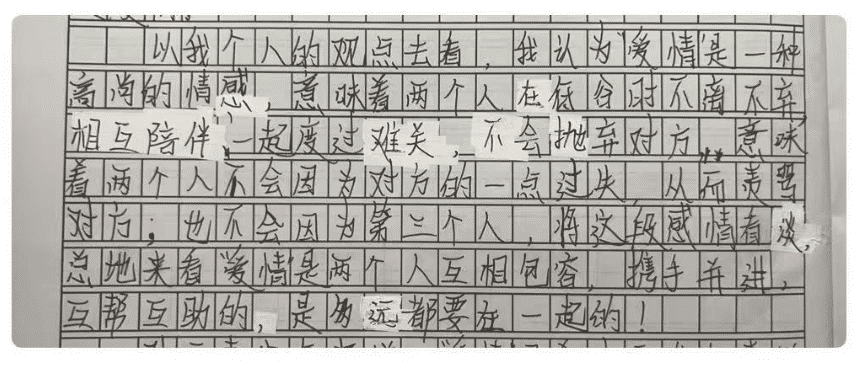 以我个人的观点去看，我认为“爱情”是一种
高尚的情感，意味着两个人在低谷时不离不弃
相互陪伴，一起度过难关，不会抛弃对方，意味
着两个人不会因为对方的一点过失，从而责骂
对方；也不会因为第三个人，将这段感情看淡，
总地来看“爱情”是两个人互相包容，携手并进，
互帮互助的，是永远都要在一起的！